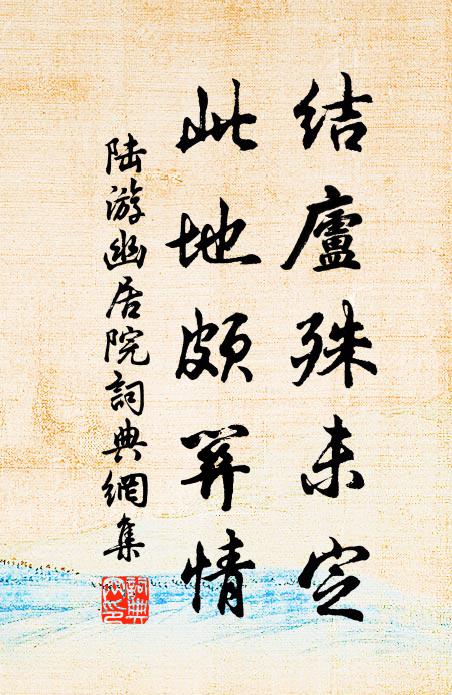 結廬殊未定
此地頗關情
陆游幽居院詞典網集